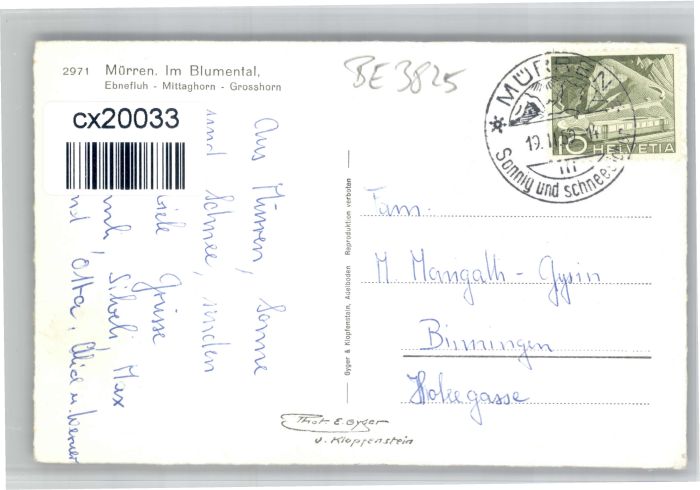 2971 Mürren. Im Blumental,
Ebnefluh - Mittaghorn - Grosshorn
BE 3825
cx20033
MÜRREN
Sonnig und schnee
15 HELVETIA
Aus Mürren, Sonne
und Schnee, senden
viele Grüsse
Max
Otto, Alice u. Werner
Gyger & Klopfenstein, Adelboden Reproduktion verboten
Fam.
M. Mangath - Gysin
Binningen
Hohegasse
Phot. E. Gyger
u. Klopfenstein